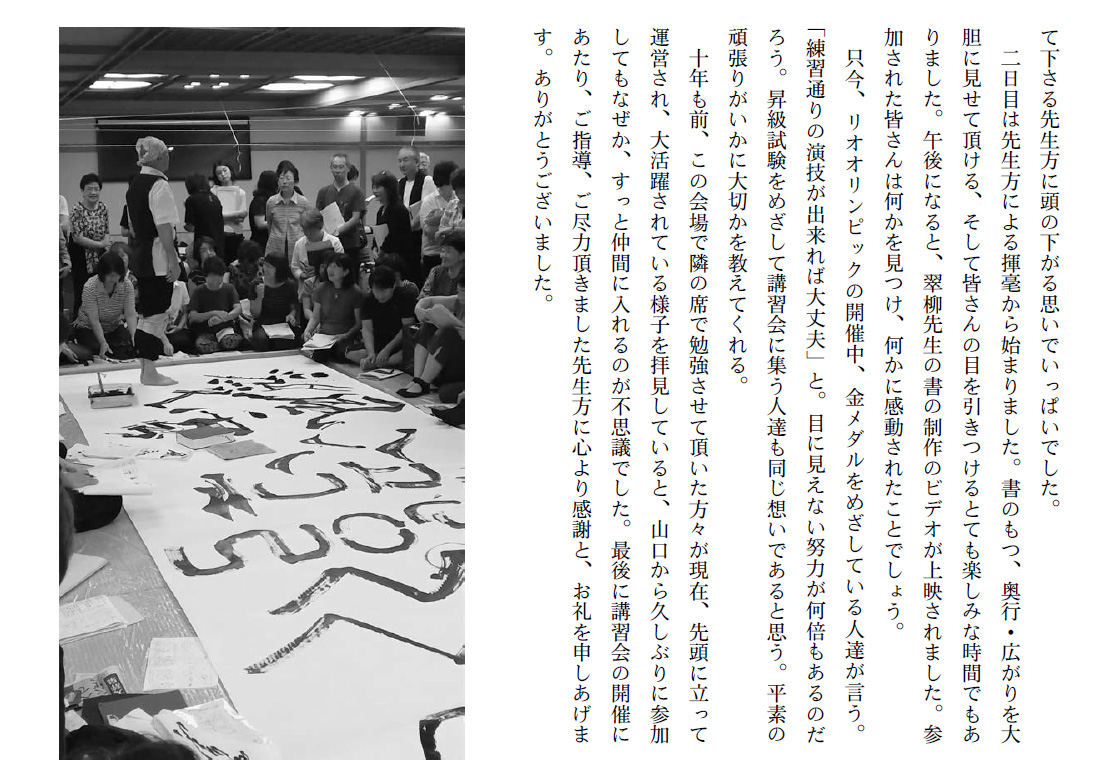 て下さる先生方に頭の下がる思いでいっぱいでした。
二日目は先生方による揮毫から始まりました。書のもつ、奥行・広がりを大
胆に見せて頂ける、そして皆さんの目を引きつけるとても楽しみな時間でもあ
りました。午後になると、翠柳先生の書の制作のビデオが上映されました。参
加された皆さんは何かを見つけ、何かに感動されたことでしょう。
只今、リオオリンピックの開催中、金メダルをめざしている人達が言う。
「練習通りの演技が出来れば大丈夫」と。目に見えない努力が何倍もあるのだ
ろう。昇級試験をめざして講習会に集う人達も同じ想いであると思う。平素の
頑張りがいかに大切かを教えてくれる。
十年も前、この会場で隣の席で勉強させて頂いた方々が現在、先頭に立って
運営され、大活躍されている様子を拝見していると、山口から久しぶりに参加
してもなぜか、すっと仲間に入れるのが不思議でした。最後に講習会の開催に
あたり、ご指導、ご尽力頂きました先生方に心より感謝と、お礼を申しあげま
す。ありがとうございました。